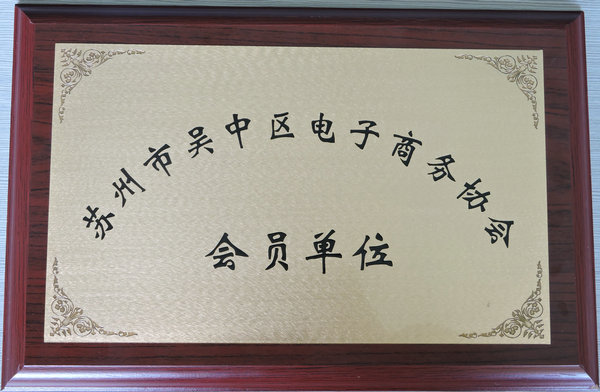 苏州市吴中区电子商务协会
会员单位